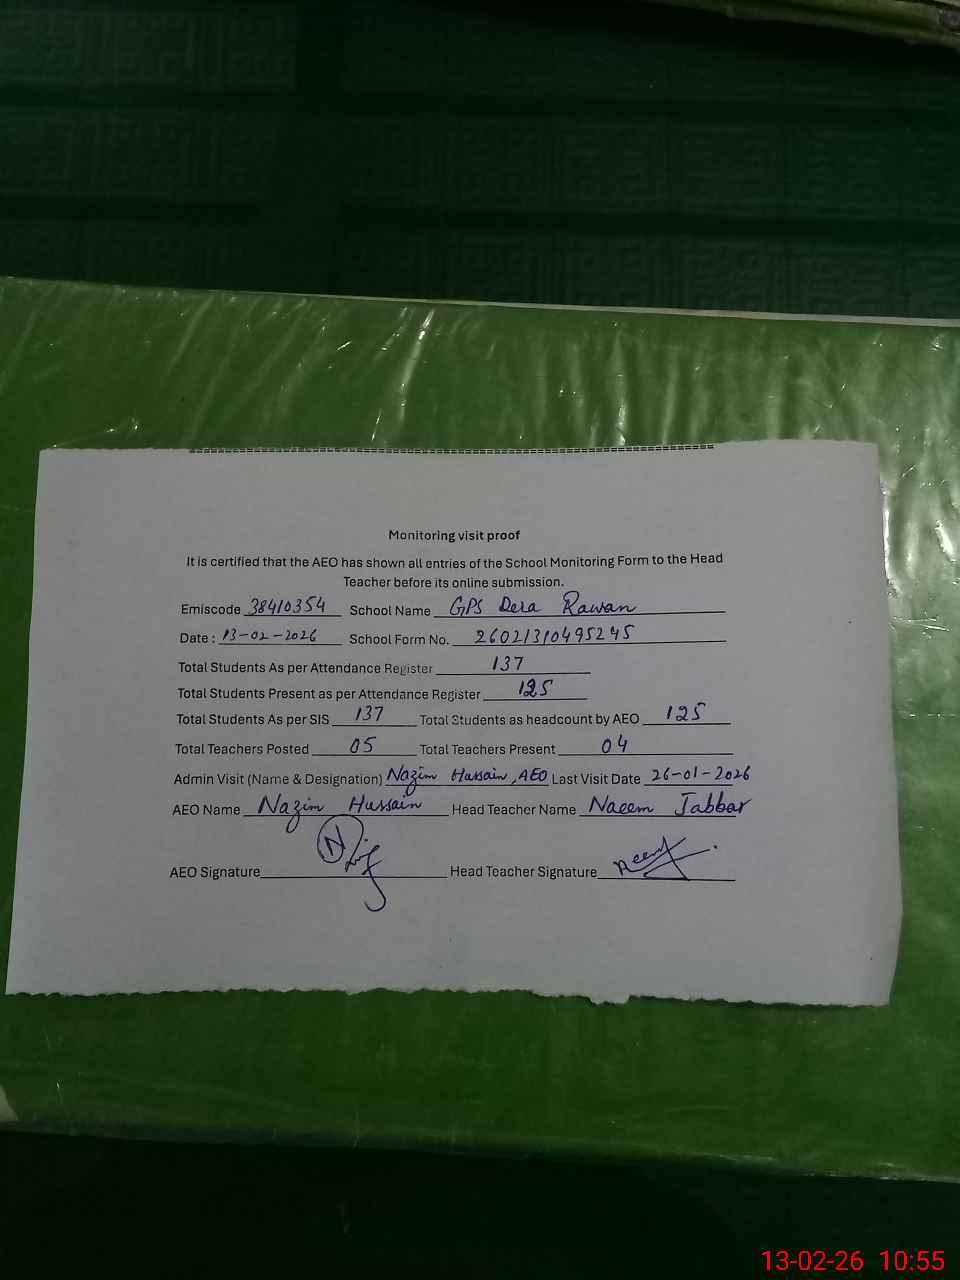 Monitoring visit proof
It is certified that the AEO has shown all entries of the School Monitoring Form to the Head
Teacher before its online submission.
Emiscode 38410354 School Name GPS Dera Rawan
Date : 13-02-2026 School Form No. 26021310495245
Total Students As per Attendance Register 137
Total Students Present as per Attendance Register 125
Total Students As per SIS 137 Total Students as headcount by AEO 125
Total Teachers Posted 05 Total Teachers Present 04
Admin Visit (Name & Designation) Nazim Hussain, AEO Last Visit Date 26-01-2026
AEO Name Nazim Hussain Head Teacher Name Naeem Jabbar
AEO Signature Head Teacher Signature Naeem
13-02-26 10:55